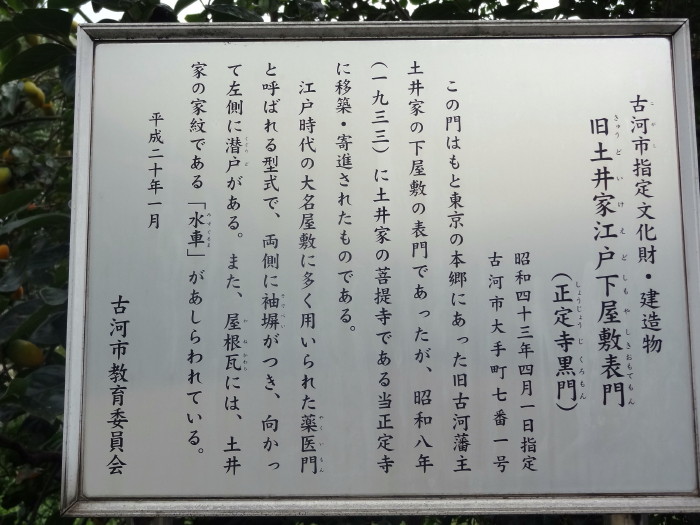 古河市指定文化財・建造物
旧土井家江戸下屋敷表門
（正定寺黒門）
昭和四十三年四月一日指定
古河市大手町七番一号
この門はもと東京の本郷にあった旧古河藩主
土井家の下屋敷の表門であったが、昭和八年
（一九三三）に土井家の菩提寺である当正定寺
に移築・寄進されたものである。
江戸時代の大名屋敷に多く用いられた薬医門
と呼ばれる型式で、両側に袖塀がつき、向かっ
て左側に潜戸がある。また、屋根瓦には、土井
家の家紋である「水車」があしらわれている。
平成二十年一月
古河市教育委員会